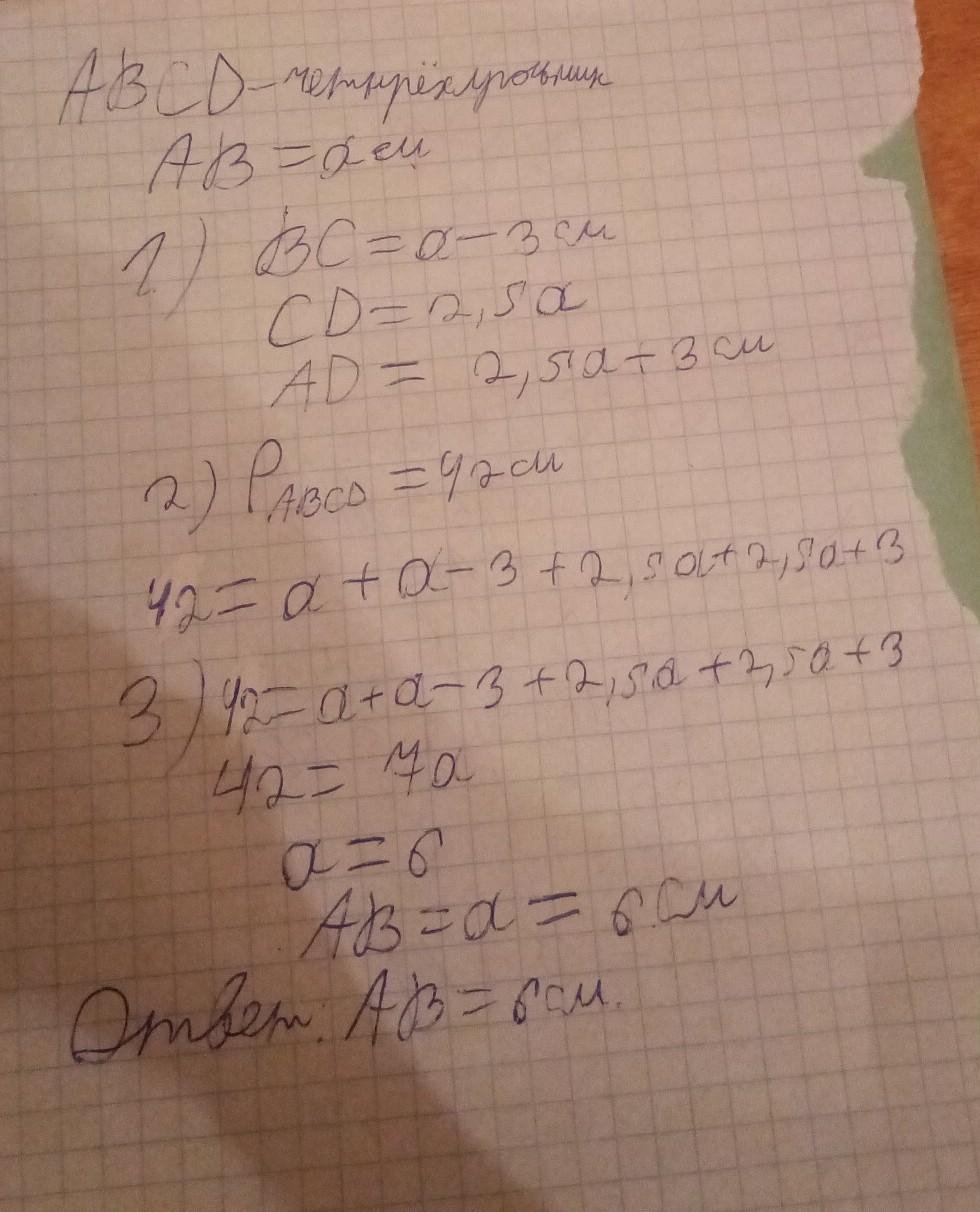 ABCD-четырёхугольник
AB = a см
1) BC = a - 3 см
CD = 2,5a
AD = 2,5a + 3 см
2) PABCD = 42 см
42 = a + a - 3 + 2,5a + 2,5a + 3
3) 42 = a + a - 3 + 2,5a + 2,5a + 3
42 = 7a
a = 6
AB = a = 6 см
Ответ: AB = 6 см.